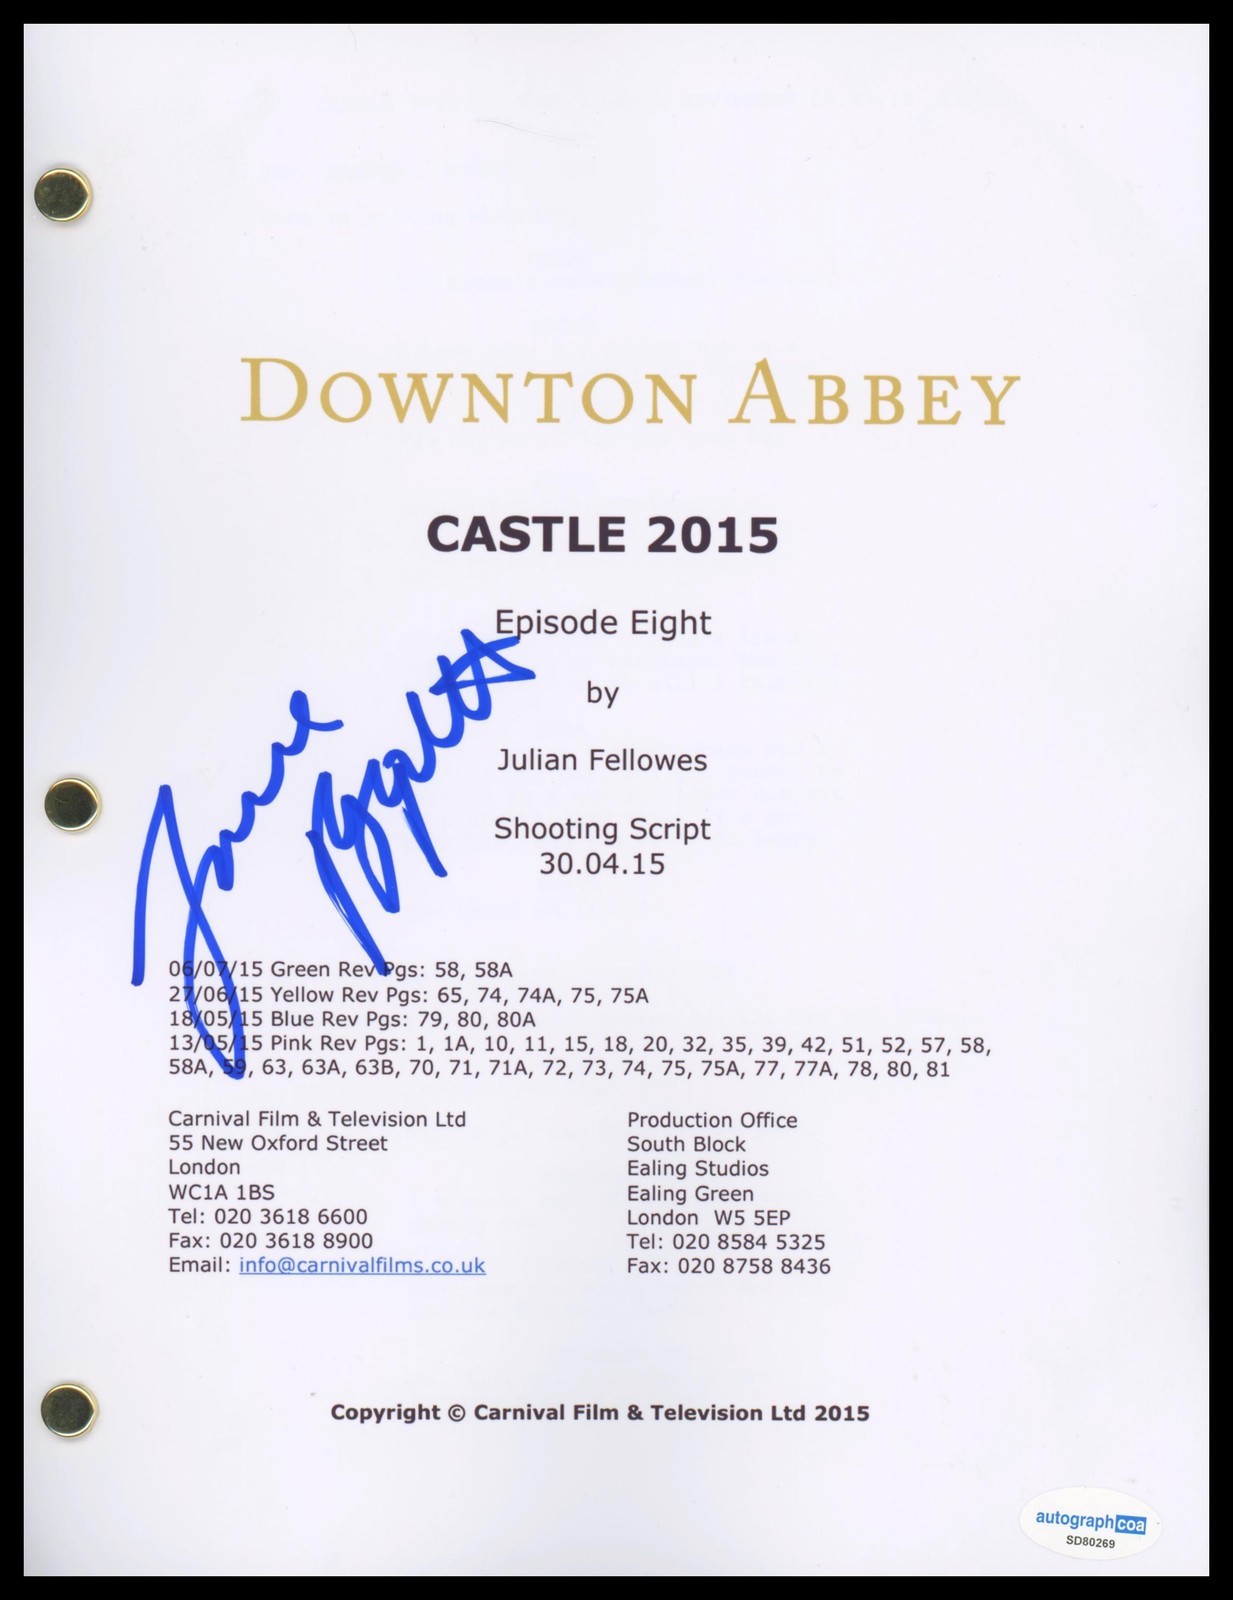 DOWNTON ABBEY
CASTLE 2015
Episode Eight
by
Julian Fellowes
Shooting Script
30.04.15
06/07/15 Green Rev Pgs: 58, 58A
27/06/15 Yellow Rev Pgs: 65, 74, 74A, 75, 75A
18/05/15 Blue Rev Pgs: 79, 80, 80A
13/05/15 Pink Rev Pgs: 1, 1A, 10, 11, 15, 18, 20, 32, 35, 39, 42, 51, 52, 57, 58,
58A, 59, 63, 63A, 63B, 70, 71, 71A, 72, 73, 74, 75, 75A, 77, 77A, 78, 80, 81
Carnival Film & Television Ltd
55 New Oxford Street
London
WC1A 1BS
Tel: 020 3618 6600
Fax: 020 3618 8900
Email: info@carnivalfilms.co.uk
Production Office
South Block
Ealing Studios
Ealing Green
London W5 5EP
Tel: 020 8584 5325
Fax: 020 8758 8436
Copyright © Carnival Film & Television Ltd 2015
autographcoa
SD80269